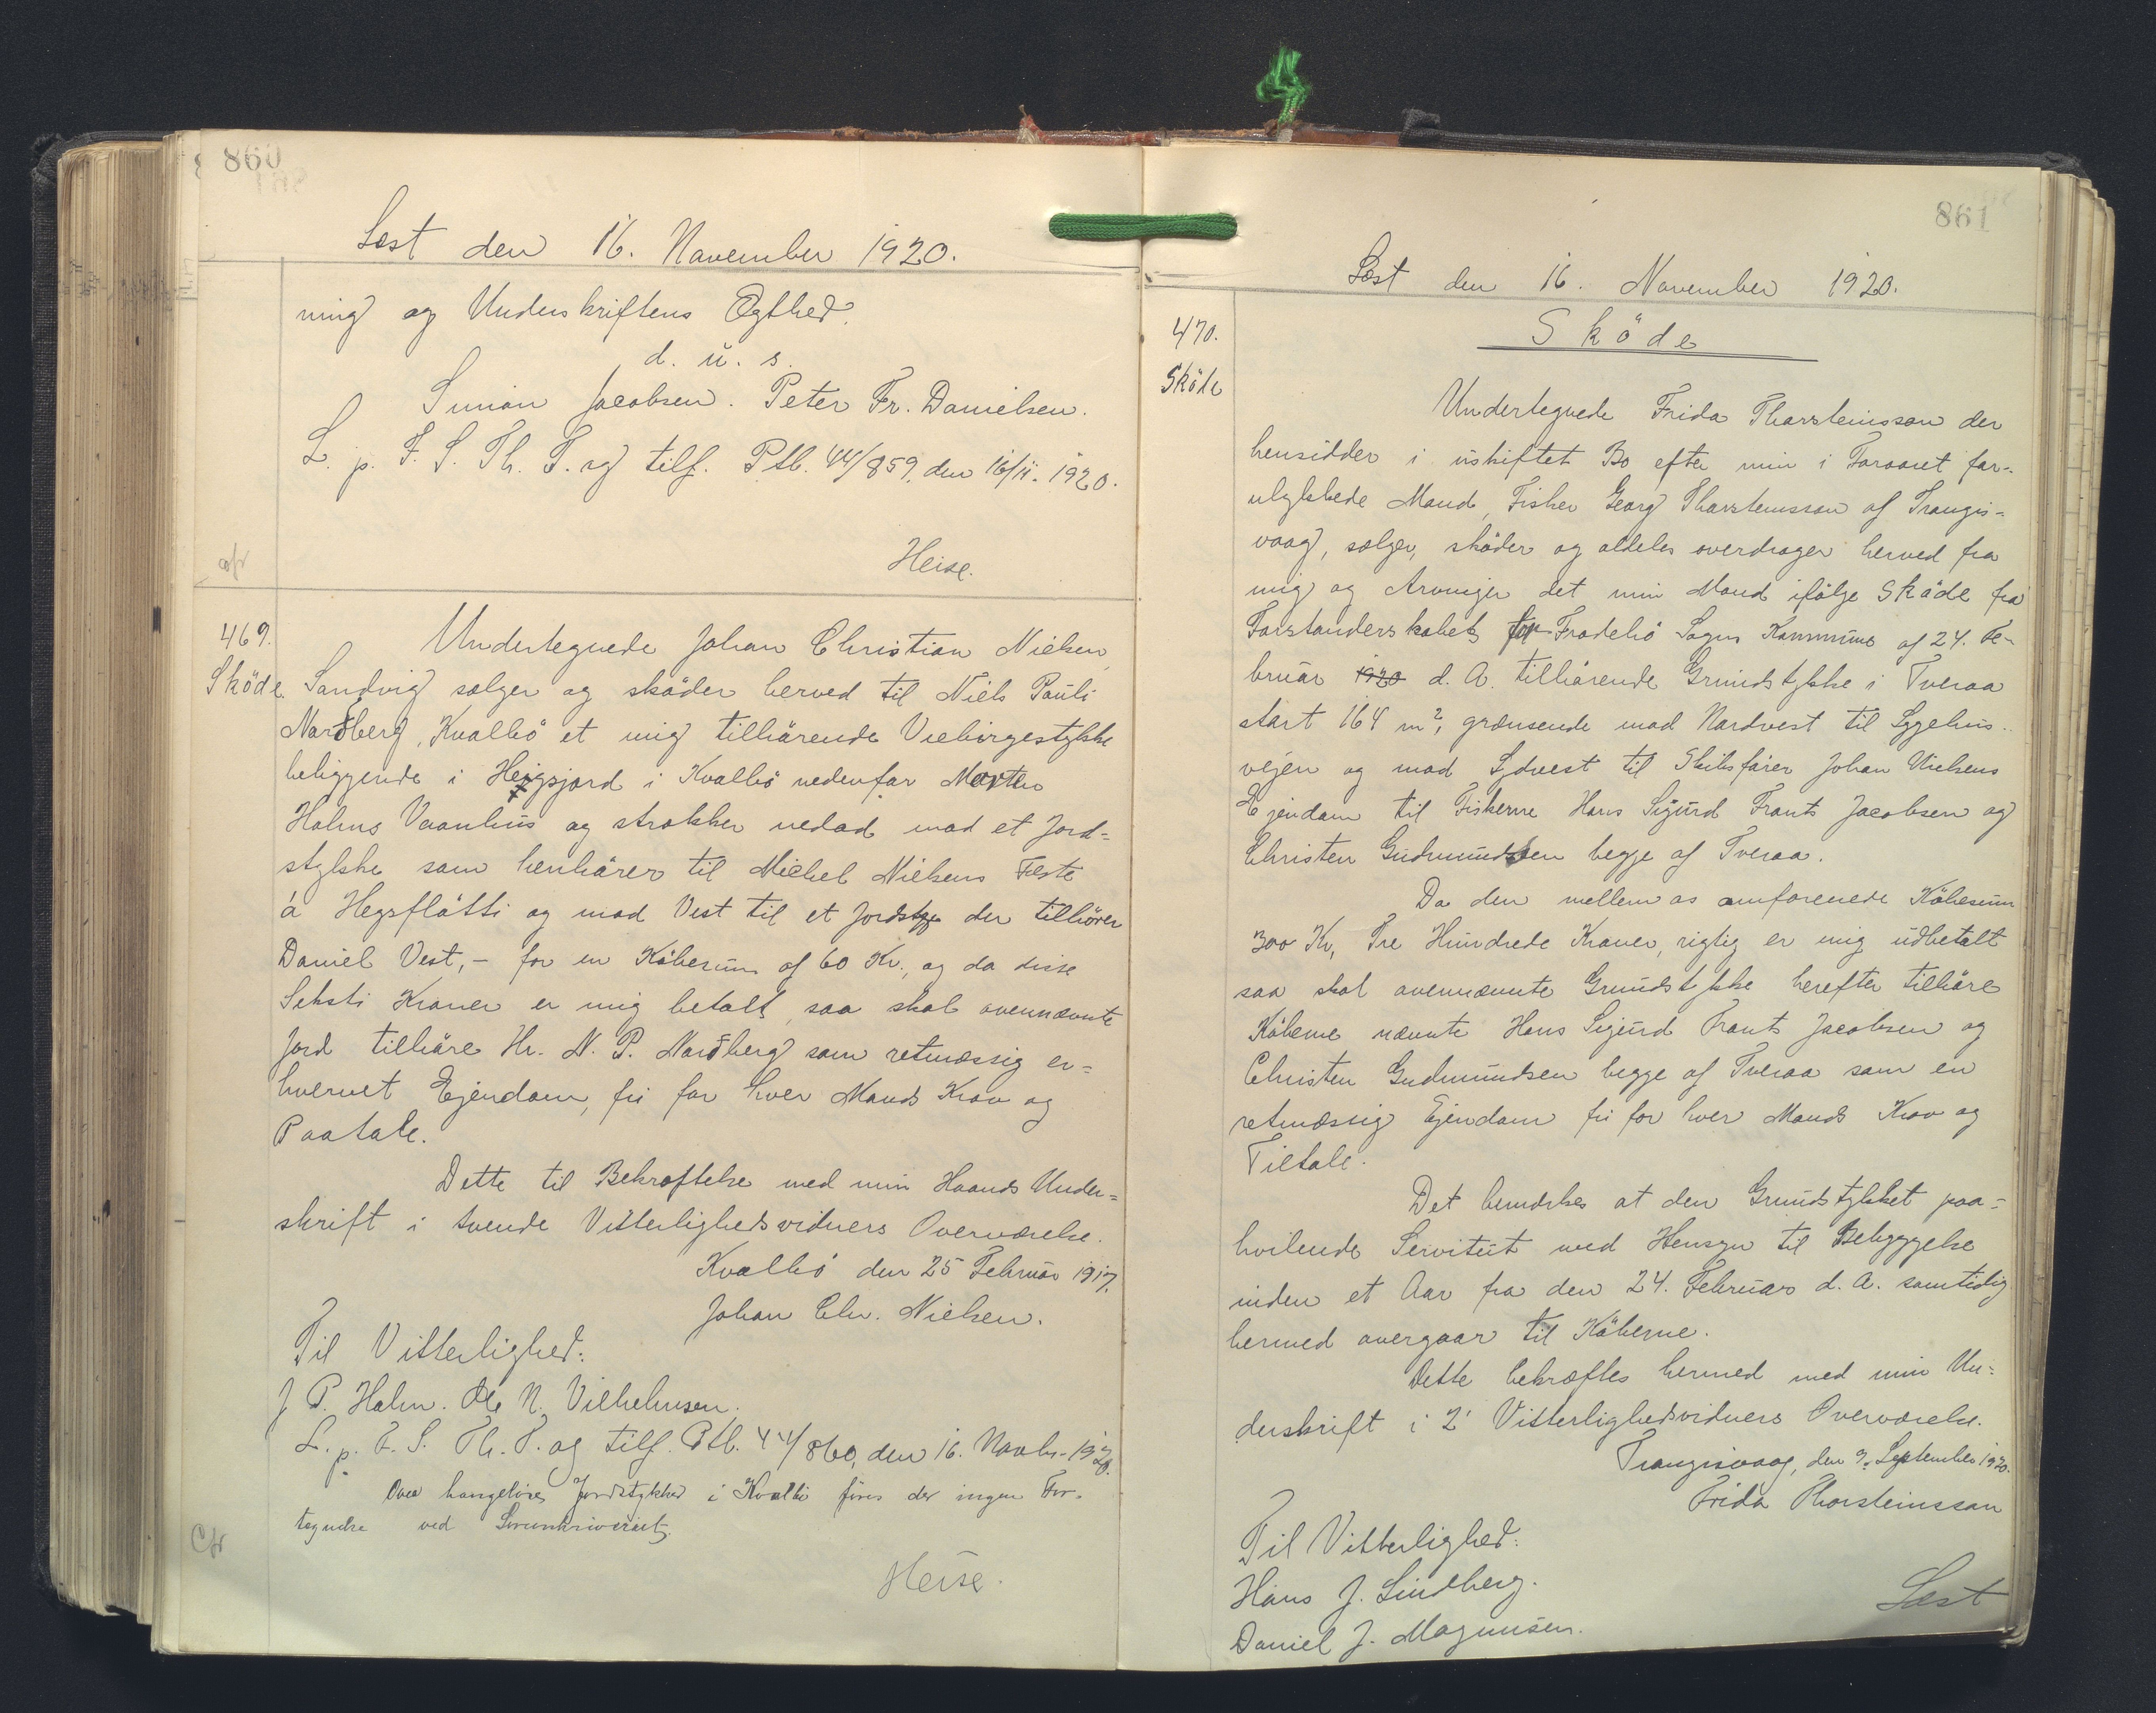 860
Læst den 16. November 1920.
ning og Underskriftens Ægthed.
d. u. s.
Simon Jacobsen. Peter Fr. Danielsen.
L. p. F. S. Th. T. og tilf. Ptb. 44/859, den 16/11. 1920.
Heise.
afr
469.
Sköde.
Undertegnede Johan Christian Nielsen,
Sandvig sælger og sköder herved til Niels Pauli
Nordberg, Kvalbö et mig tilhörende Viebörgestykke
beliggende i Hegsjord i Kvalbö nedenfor Morten
Holms Vaanhus og strækker nedad mod et Jord=
stykke som henhörer til Michel Nielsens Feste
á Hegsfløtti og mod Vest til et Jordstyk der tilhörer
Daniel Vest, - for en Köbesum af 60 Kr., og da disse
Seksti Kroner er mig betalt, saa skal ovennævnte
Jord tilhöre Hr. N. P. Nordberg som retmæssig er=
hvervet Ejendom, fri for hver Mands Krav og
Paatale.
Dette til Bekræftelse med min Haands Under=
skrift i tvende Vitterlighedsvidners Overværelse.
Kvalbö den 25 Februar 1917.
Johan Chr. Nielsen.
Til Vitterlighed:
J P. Holm. Ole N. Vilhelmsen.
L. p. F. S. Th. T. og tilf. Ptb. 44/860, den 16. Novbr. 1920.
Over haugelöse Jordstykker i Kvalbö föres der ingen For-
tegnelse ved Sorenskriveriet.
Heise.
861
Læst den 16. November 1920.
470.
Sköde
Sköde
Undertegnede Frida Thorsteinsson der
hensidder i uskiftet Bo efter min i Foraaret for-
ulykkede Mand, Fisker Georg Thorsteinsson af Trangis-
vaag, sælger, sköder og aldeles overdrager herved fra
mig og Arvinger det min Mand ifölge Sköde fra
Forstanderskabet for Frodebö Sogns Kommune af 24. Fe-
bruar 1920 d. A. tilhörende Grundstykke i Tveraa
stort 164 m², grænsende mod Nordvest til Sygehus-
vejen og mod Sydvest til Skibsförer Johan Nielsens
Ejendom til Fiskerne Hans Sigurd Frants Jacobsen og
Christen Gudmundsen begge af Tveraa.
Da den mellem os omforenede Köbesum
300 Kr, Tre Hundrede Kroner, rigtig er mig udbetalt
saa skal ovennævnte Grundstykke herefter tilhöre
Köberne nævnte Hans Sigurd Frants Jacobsen og
Christen Gudmundsen begge af Tveraa som en
retmæssig Ejendom fri for hver Mands Krav og
Tiltale.
Det bemærkes at den Grundstykket paa=
hvilende Servitut med Hensyn til Bebyggelse
inden et Aar fra den 24. Februar d. A. samtidig
hermed overgaar til Köberne.
Dette bekræftes hermed med min Un=
derskrift i 2 Vitterlighedsvidners Overværelse.
Trangisvaag, den 9. September 1920.
Frida Thorsteinsson
Til Vitterlighed:
Hans J. Lindberg.
Daniel J. Magnusen.
Læst